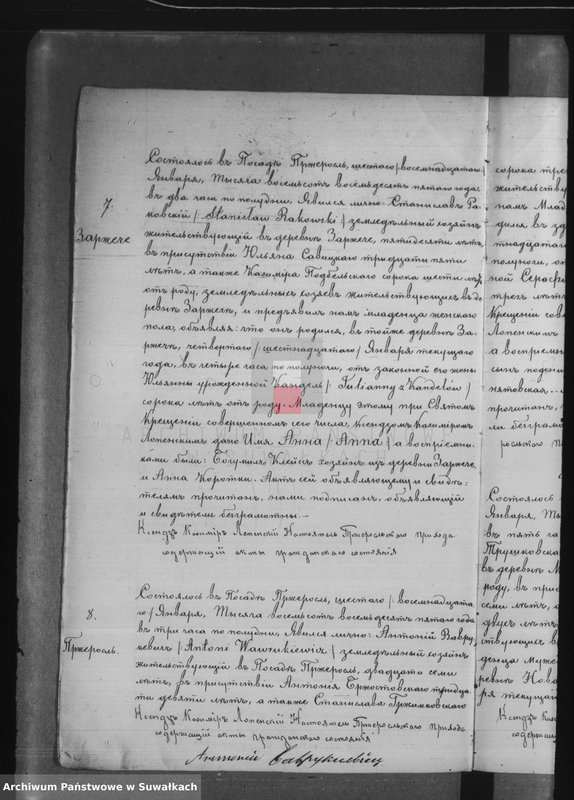 7.
Заржече
Состоялось въ Посадѣ Пржеросль, шестаго /восемнадцатаго/
Января, Тысяча восемьсотъ восемьдесятъ пятаго года,
въ два часа по полудни, Явился лично: Станиславъ Ра-
ковский / Stanisław Rakowski / земледѣльный хозяинъ
жительствующий въ деревнѣ Заржече, пятидесяти лѣтъ,
въ присутствіи Юльяна Савицкаго тридцати пяти
лѣтъ, а также Казиміра Подбельскаго сорока шести лѣтъ
отъ роду, земледѣльныхъ хозяевъ жительствующихъ въ де-
ревнѣ Заржечѣ, и предъявилъ намъ младенца женскаго
пола, объявляя: что онъ родился, въ тойже деревнѣ За-
ржечѣ, четвертаго /шестнадцатаго/ Января текущаго
года, въ четыре часа по полуночи, отъ законной его жены
Юльянны урожденной Кандель / Julianny z Kandelów /
сорока лѣтъ отъ роду. Младенцу этому при Святомъ
Крещеніи совершенномъ сего числа, Ксендзомъ Казиміромъ
Лопенскимъ дано Имя Анна / Anna / а воспріемни-
ками были: Богумилъ Клейсъ хозяинъ изъ деревни Заржече,
и Анна Коротки. Актъ сей объявляющему и свидѣ-
телямъ прочитанъ, нами подписанъ, объявляющій
и свидѣтели безграмотны. —
Ксендзъ Казиміръ Лопенскій Настоятель Пржеросльскаго прихода
содержащій акты гражданскаго состоянія
8.
Пржеросль.
Состоялось въ Посадѣ Пржеросль, шестаго / восемнадцата-
го/ Января, Тысяча восемьсотъ восемьдесятъ пятаго года
въ три часа по полудни, Явился лично: Антоній Вавру-
кевичъ / Antoni Wawrukiewicz / земледѣльный хозяинъ
жительствующий въ Посадѣ Пржеросль, двадцати семи
лѣтъ, въ присутствіи Антонія Бржостовскаго тридца-
ти девяти лѣтъ, а также Станислава
Ксендзъ Казиміръ Лопенскій Настоятель Пржеросльскаго прихода
содержащій акты гражданскаго состоянія
Антоній Ваврукевичъ
сорока
жительству
намъ Млад
дился въ
тнадцатаго
полуночи, от
ной
трехъ лѣтъ
Крещеніи сов
Лопенскимъ
а воспріемн
сынъ
прочитанъ,
ли безграмо
Состоялось
Января,
въ пять ча
въ деревнѣ
роду, въ при
семи лѣтъ,
двухъ лѣтъ
ствующихъ в
денца Муже
ревнѣ Нова
ря текущаго
Ксендзъ
содержа
Archiwum Państwowe w Suwałkach